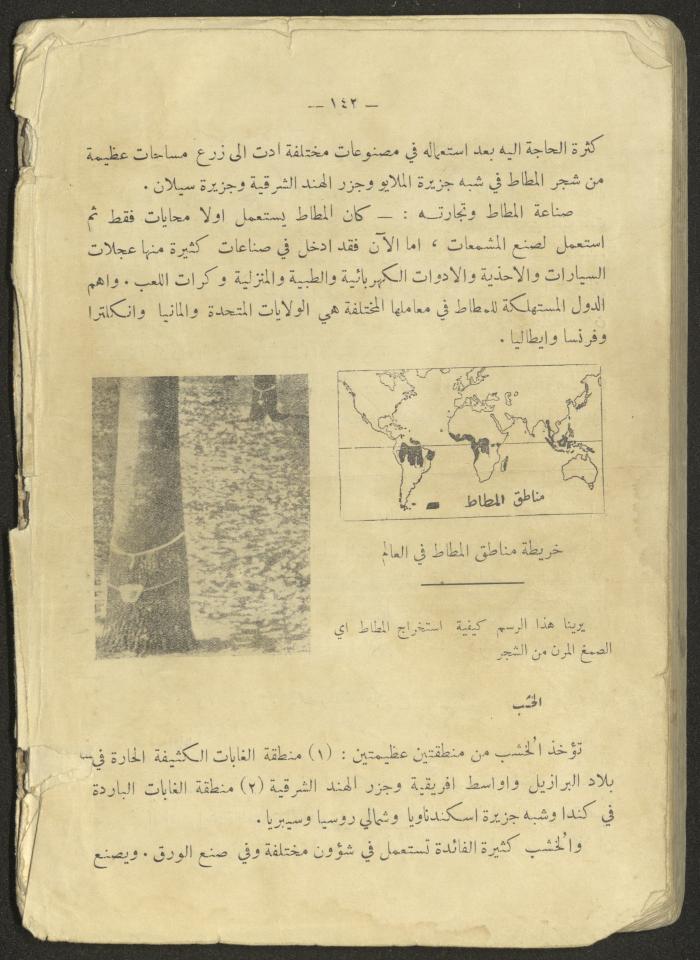 — ١٤٢ —
كثرة الحاجة اليه بعد استعماله في مصنوعات مختلفة ادت الى زرع مساحات عظيمة
من شجر المطاط في شبه جزيرة الملايو وجزر الهند الشرقية وجزيرة سيلان .
صناعة المطاط وتجارته : — كان المطاط يستعمل اولا محايات فقط ثم
استعمل لصنع المشمعات ، اما الآن فقد ادخل في صناعات كثيرة منها عجلات
السيارات والاحذية والادوات الكهربائية والطبية والمنزلية وكرات اللعب . واهم
الدول المستهلكة للمطاط في معاملها المختلفة هي الولايات المتحدة والمانيا وانكلترا
وفرنسا وايطاليا .
مناطق المطاط
خريطة مناطق المطاط في العالم
يرينا هذا الرسم كيفية استخراج المطاط اي
الصمغ المرن من الشجر
الخشب
تؤخذ الخُشب من منطقتين عظيمتين : (١) منطقة الغابات الكثيفة الحارة في
بلاد البرازيل واواسط افريقية وجزر الهند الشرقية (٢) منطقة الغابات الباردة
في كندا وشبه جزيرة اسكندناويا وشمالي روسيا وسيبريا .
والخُشب كثيرة الفائدة تستعمل في شؤون مختلفة وفي صنع الورق . ويصنع